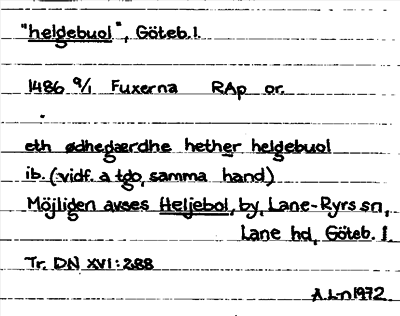 "helgebuol", Göteb.l.
1486 9/1 Fuxerna RAp or.
eth ødhegærdhe hether helgebuol
ib. (vidf. a tgo, samma hand)
Möjligen avses Heljebol, by, Lane-Ryrs sn,
Lane hd, Göteb. l.
Tr. DN XVI:288
A.L-n 1972